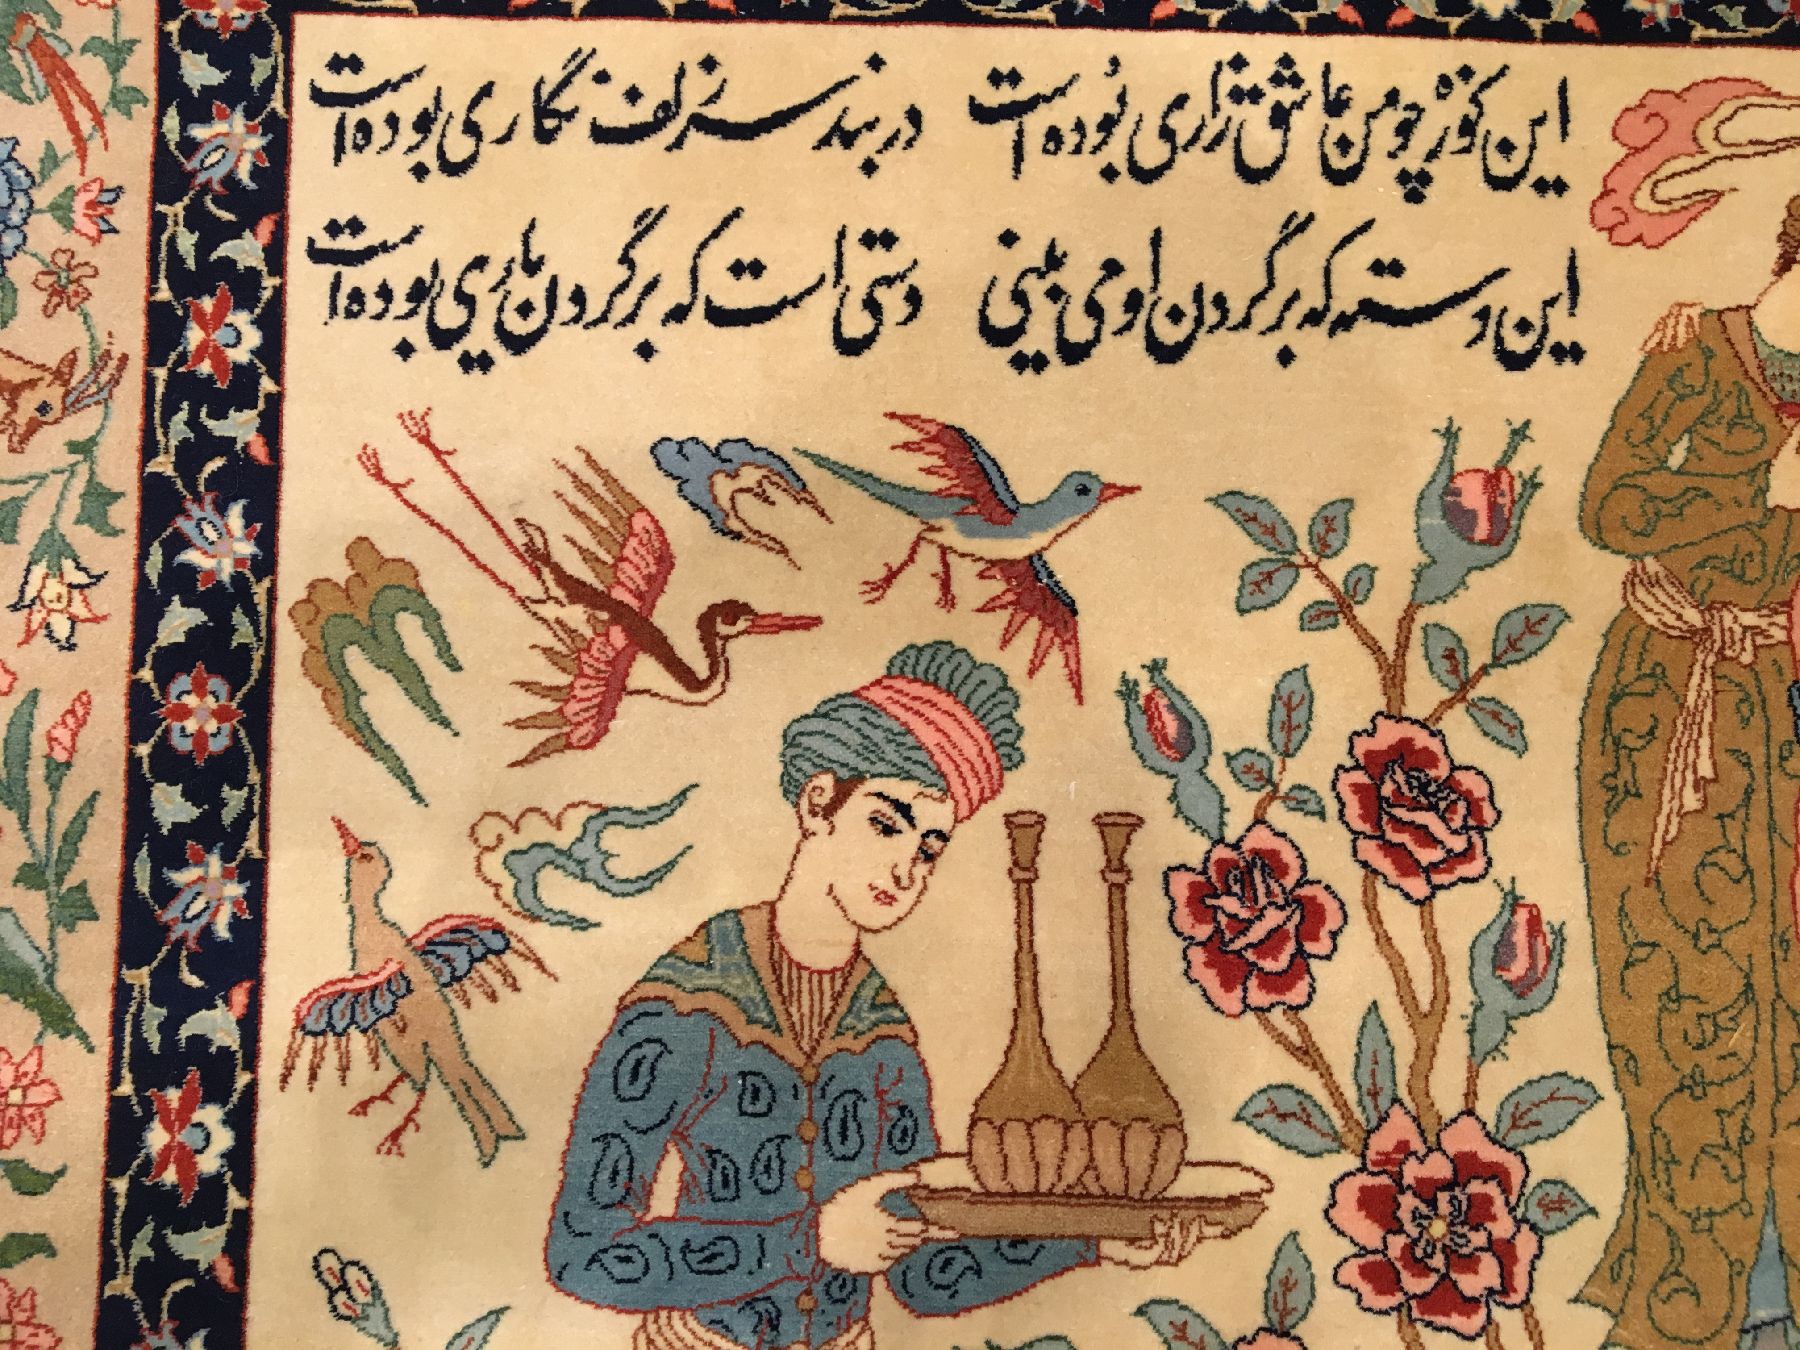 این کوزه چو من عاشق زاری بوده است در بند سر زلف نگاری بوده است
این دسته که بر گردن او می بینی دستی است که بر گردن یاری بوده است